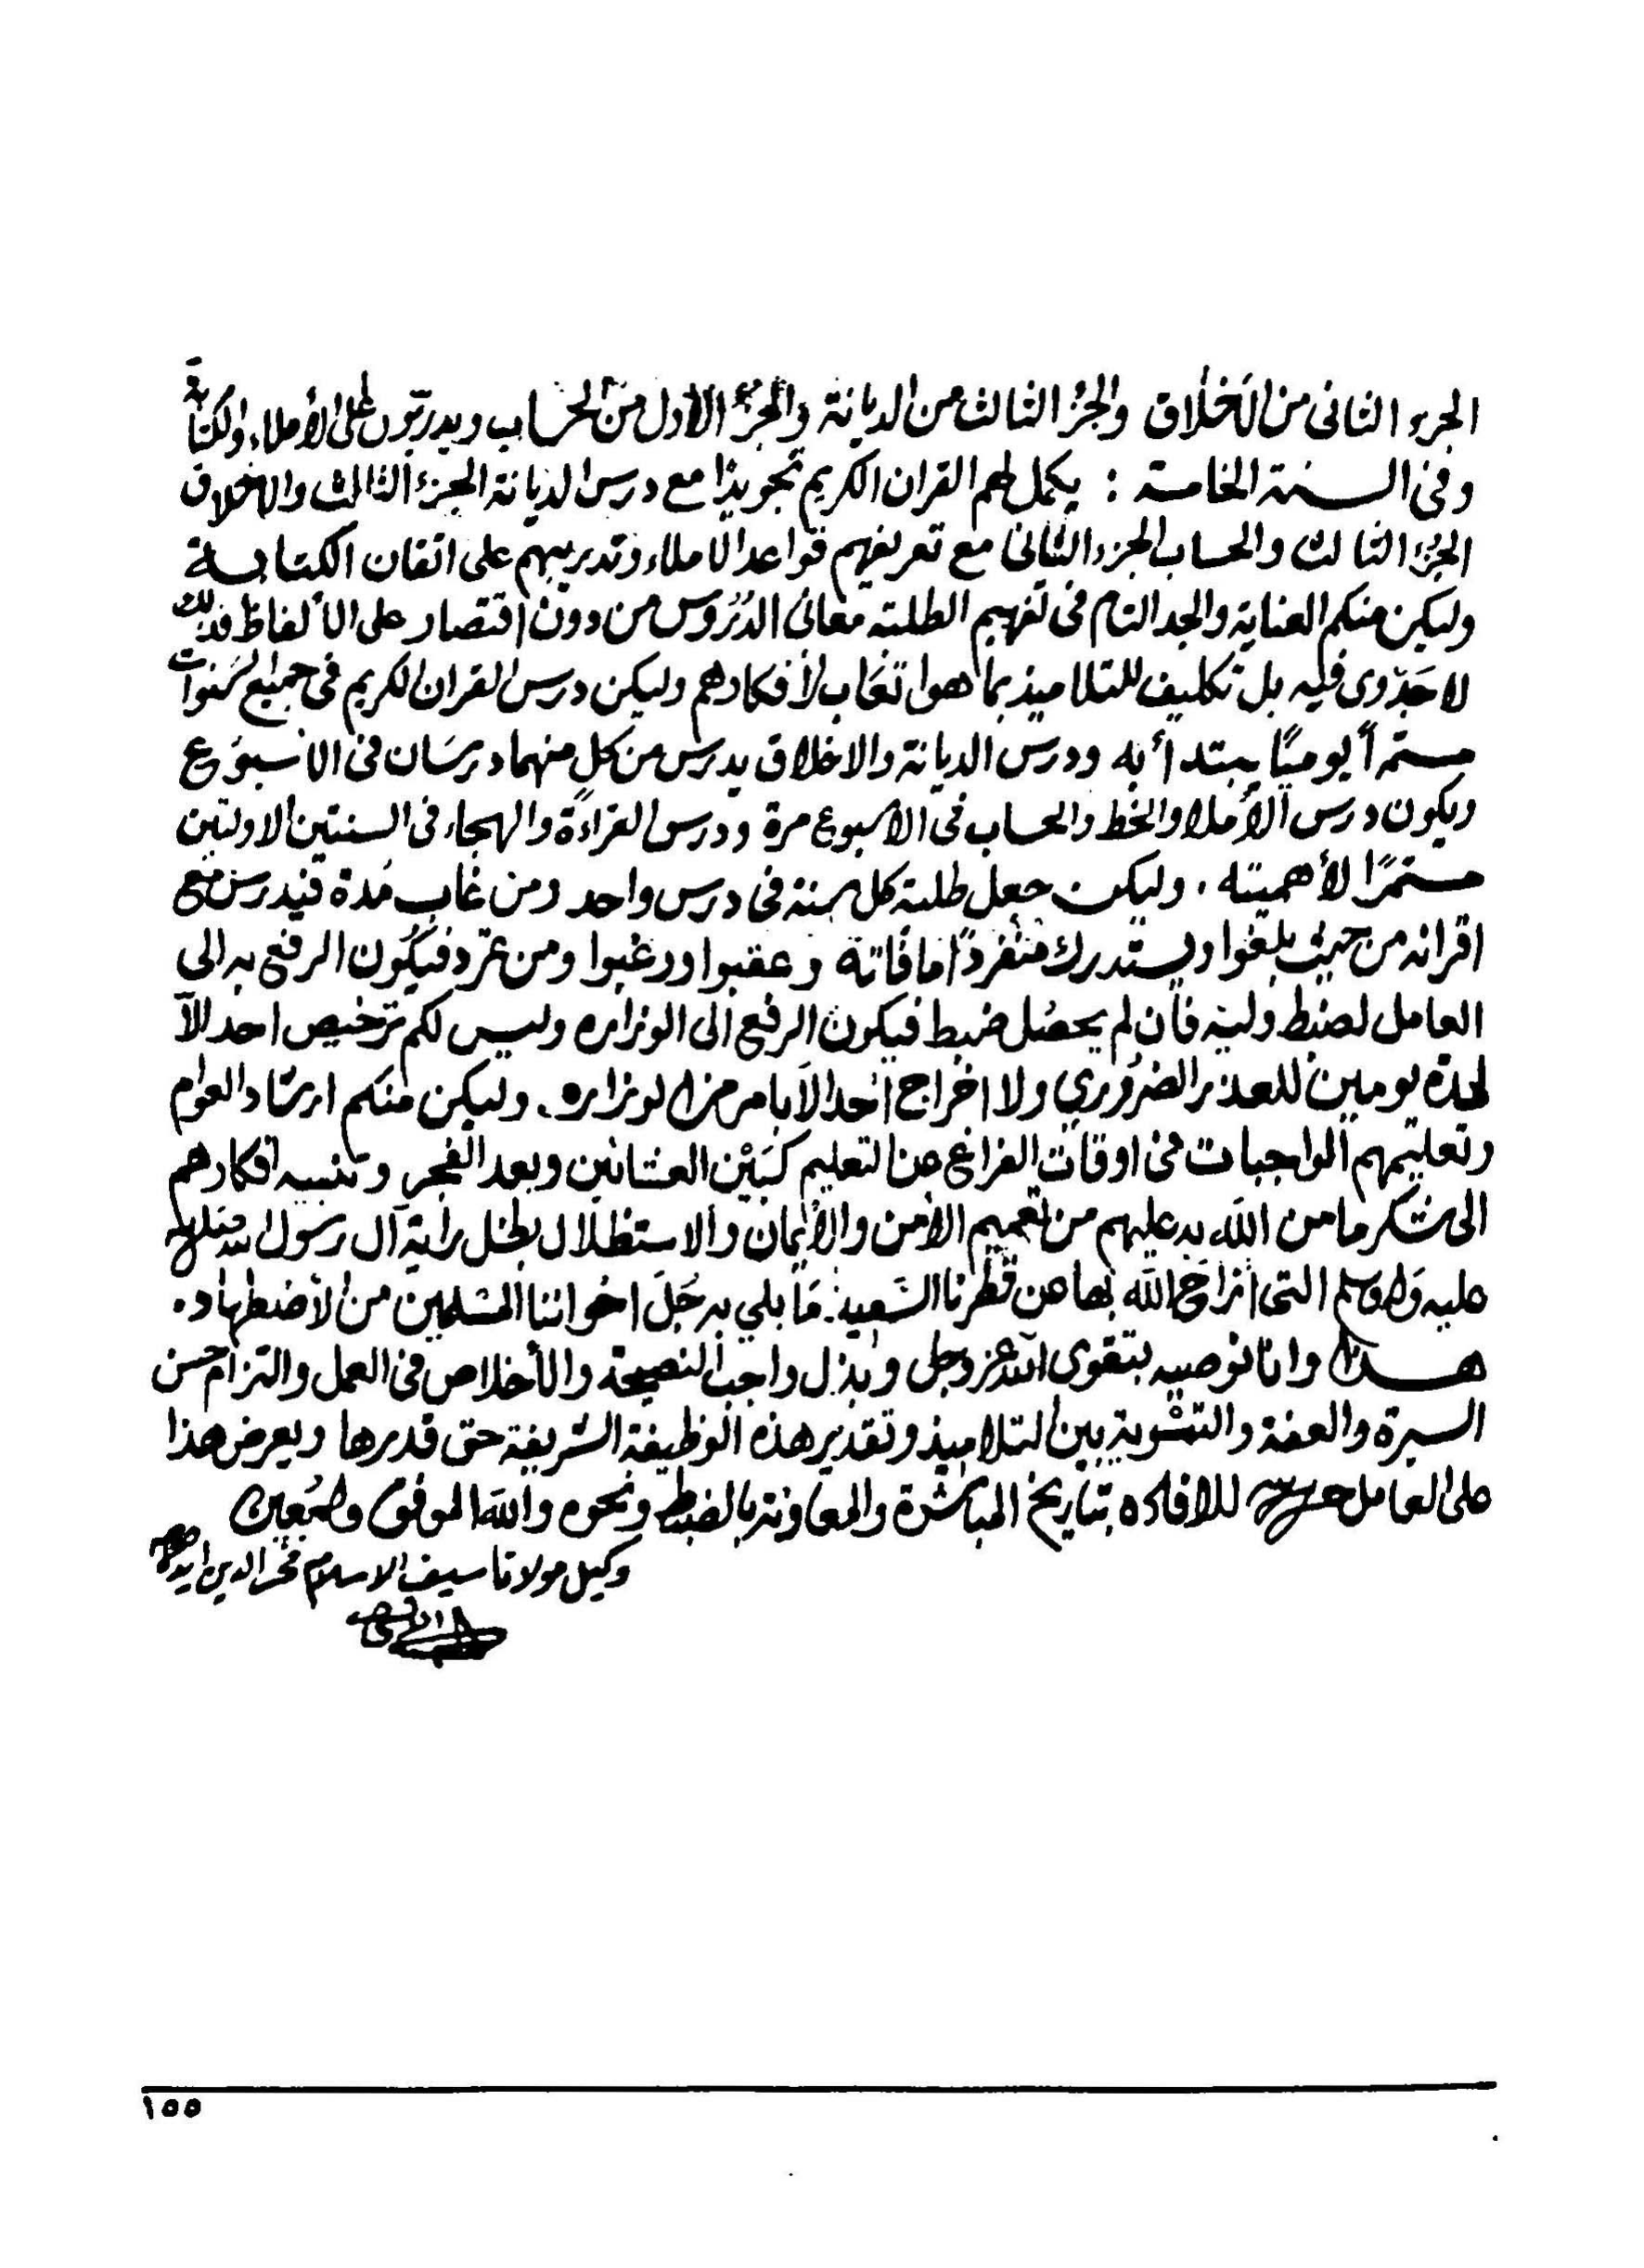 الجزء الثانى من الاخلاق والجزء الثالث من الديانة والجزء الأول من الحساب ويدربون على الأملاء والكتابة
وفى السنة الخامسة : يكمل لهم القران الكريم تجويدًا مع درس الديانة الجزء الثالث والاخلاق
الجزء الثالث والحساب الجزء الثانى مع تعريفهم قواعد الاملاء وتدريبهم على اتقان الكتابة
وليكن منكم العناية والجد التام فى تفهيم الطلبة معانى الدروس من دون اقتصار على الألفاظ فذلك
لا جدوى فيه بل تكليف للتلاميذ بما هو اتعاب لأفكارهم وليكن درس القران الكريم فى جميع السنوات
مستمرًا يوميًا يبتدأ به ودرس الديانة والاخلاق يدرس من كل منهما درسان فى الاسبوع
ويكون درس الأملاء والخط والحساب فى الاسبوع مرة ودرس القراءة والهجاء فى السنتين الاولتين
مستمرًا لأهميته . وليكن جعل طلبة كل سنة فى درس واحد ومن غاب مدة فيدرس مع
اقرانه من حيث بلغوا ويستدرك منفردًا ما فاته وعقبوا ورغبوا ومن تمرد فيكون الرفع به الى
العامل لضبط وليه فأن لم يحصل ضبط فيكون الرفع الى الوزاره وليس لكم ترخيص احد الا
لمدة يومين للعذر الضروري ولا اخراج احد الا بامر من الوزاره . وليكن منكم ارشاد العوام
وتعليمهم الواجبات فى اوقات الفراغ عن التعليم كبين العشائين وبعد الفجر وتنبيه افكارهم
الى شكر ما من الله به عليهم من تعميم الأمن والأيمان والاستظلال بظل راية آل رسول الله صلى الله
عليه وآله وسلم التى ازاح الله بها عن قطرنا السعيد ما بلي به جل اخواننا المسلمين من الأضطهاد .
هــذا وانا نوصيه بتقوى الله عز وجل وبذل واجب النصيحة والأخلاص فى العمل والتزام حسن
السيرة والعفة والتسوية بين التلاميذ وتقدير هذه الوظيفة الشريفة حق قدرها ويعرض هذا
على العامل للافاده بتاريخ المباشرة والمعاونة بالضبط ونحوه والله الموفق والمعين
وكيل مولانا سيف الاسلام فخر الدين ايده الله
١٥٥